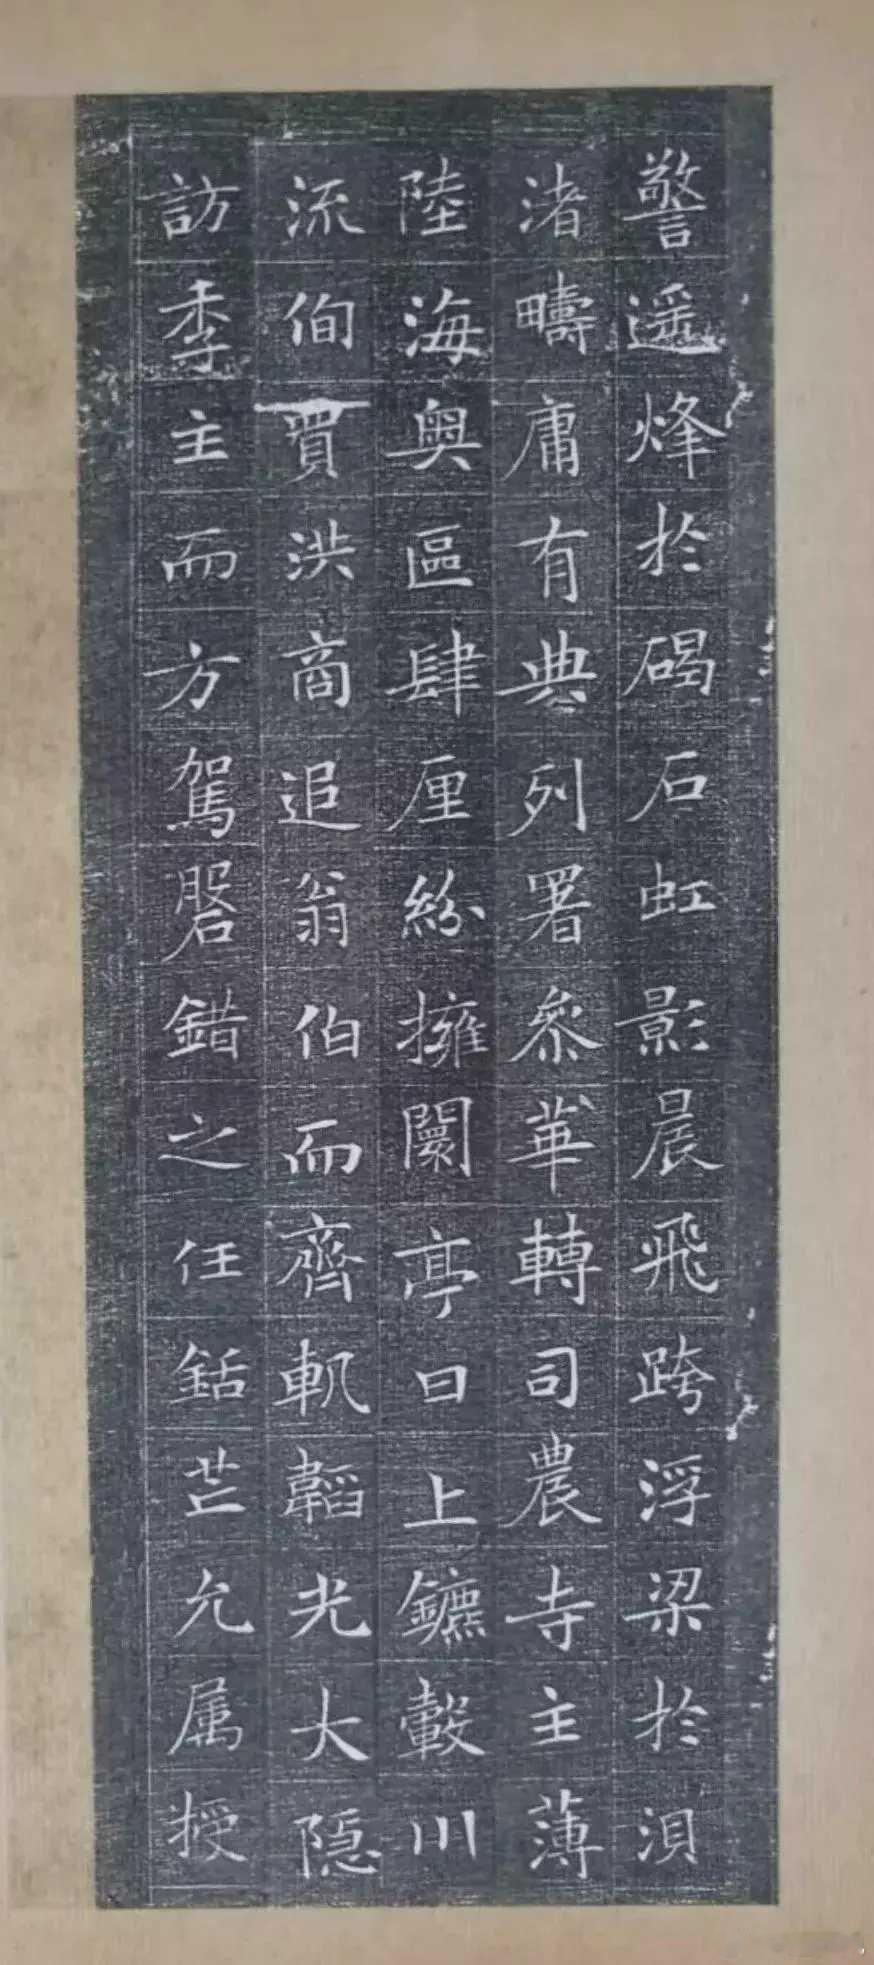 警遥烽於碣石虹影晨飛跨浮梁於浿
渚疇庸有典列署叅華轉司農寺主薄
陸海奥區肆厘紛擁闤亭日上鑣轂川
流伺買洪商追翁伯而齊軏韜光大隐
訪季主而方駕磐錯之任銛芒允属授